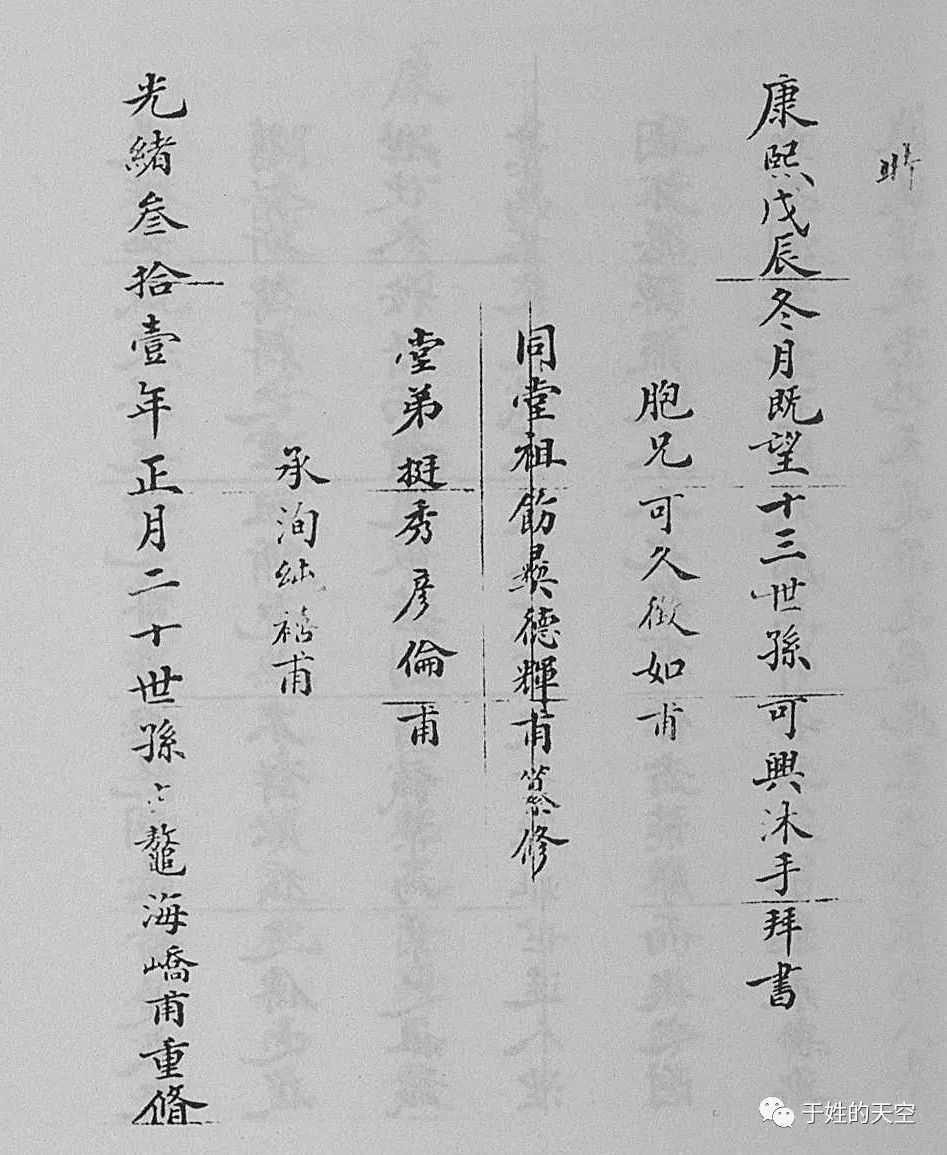 康熙戊辰冬月既望十三世孫可興沐手拜書
胞兄可久徵如甫
同堂祖飭彞德輝甫纂修
堂弟挺秀彦倫甫
承洵甫
光緒叁拾壹年正月二十世孫鼇海嶠甫重脩
于姓的天空